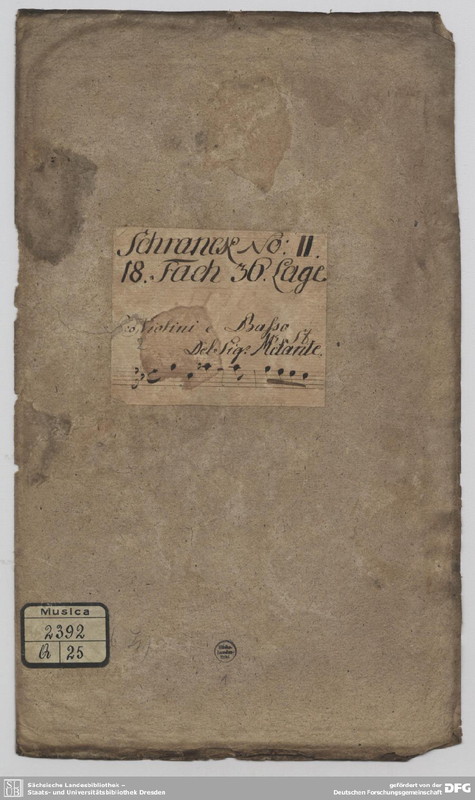 Schranck No: II.
18. Fach 36. Lage
Violini e Basso
Del Sigr Melante.
Musica
2392
25
Sächsische Landesbibliothek –
Staats- und Universitätsbibliothek Dresden
gefördert von der
Deutschen Forschungsgemeinschaft
DFG